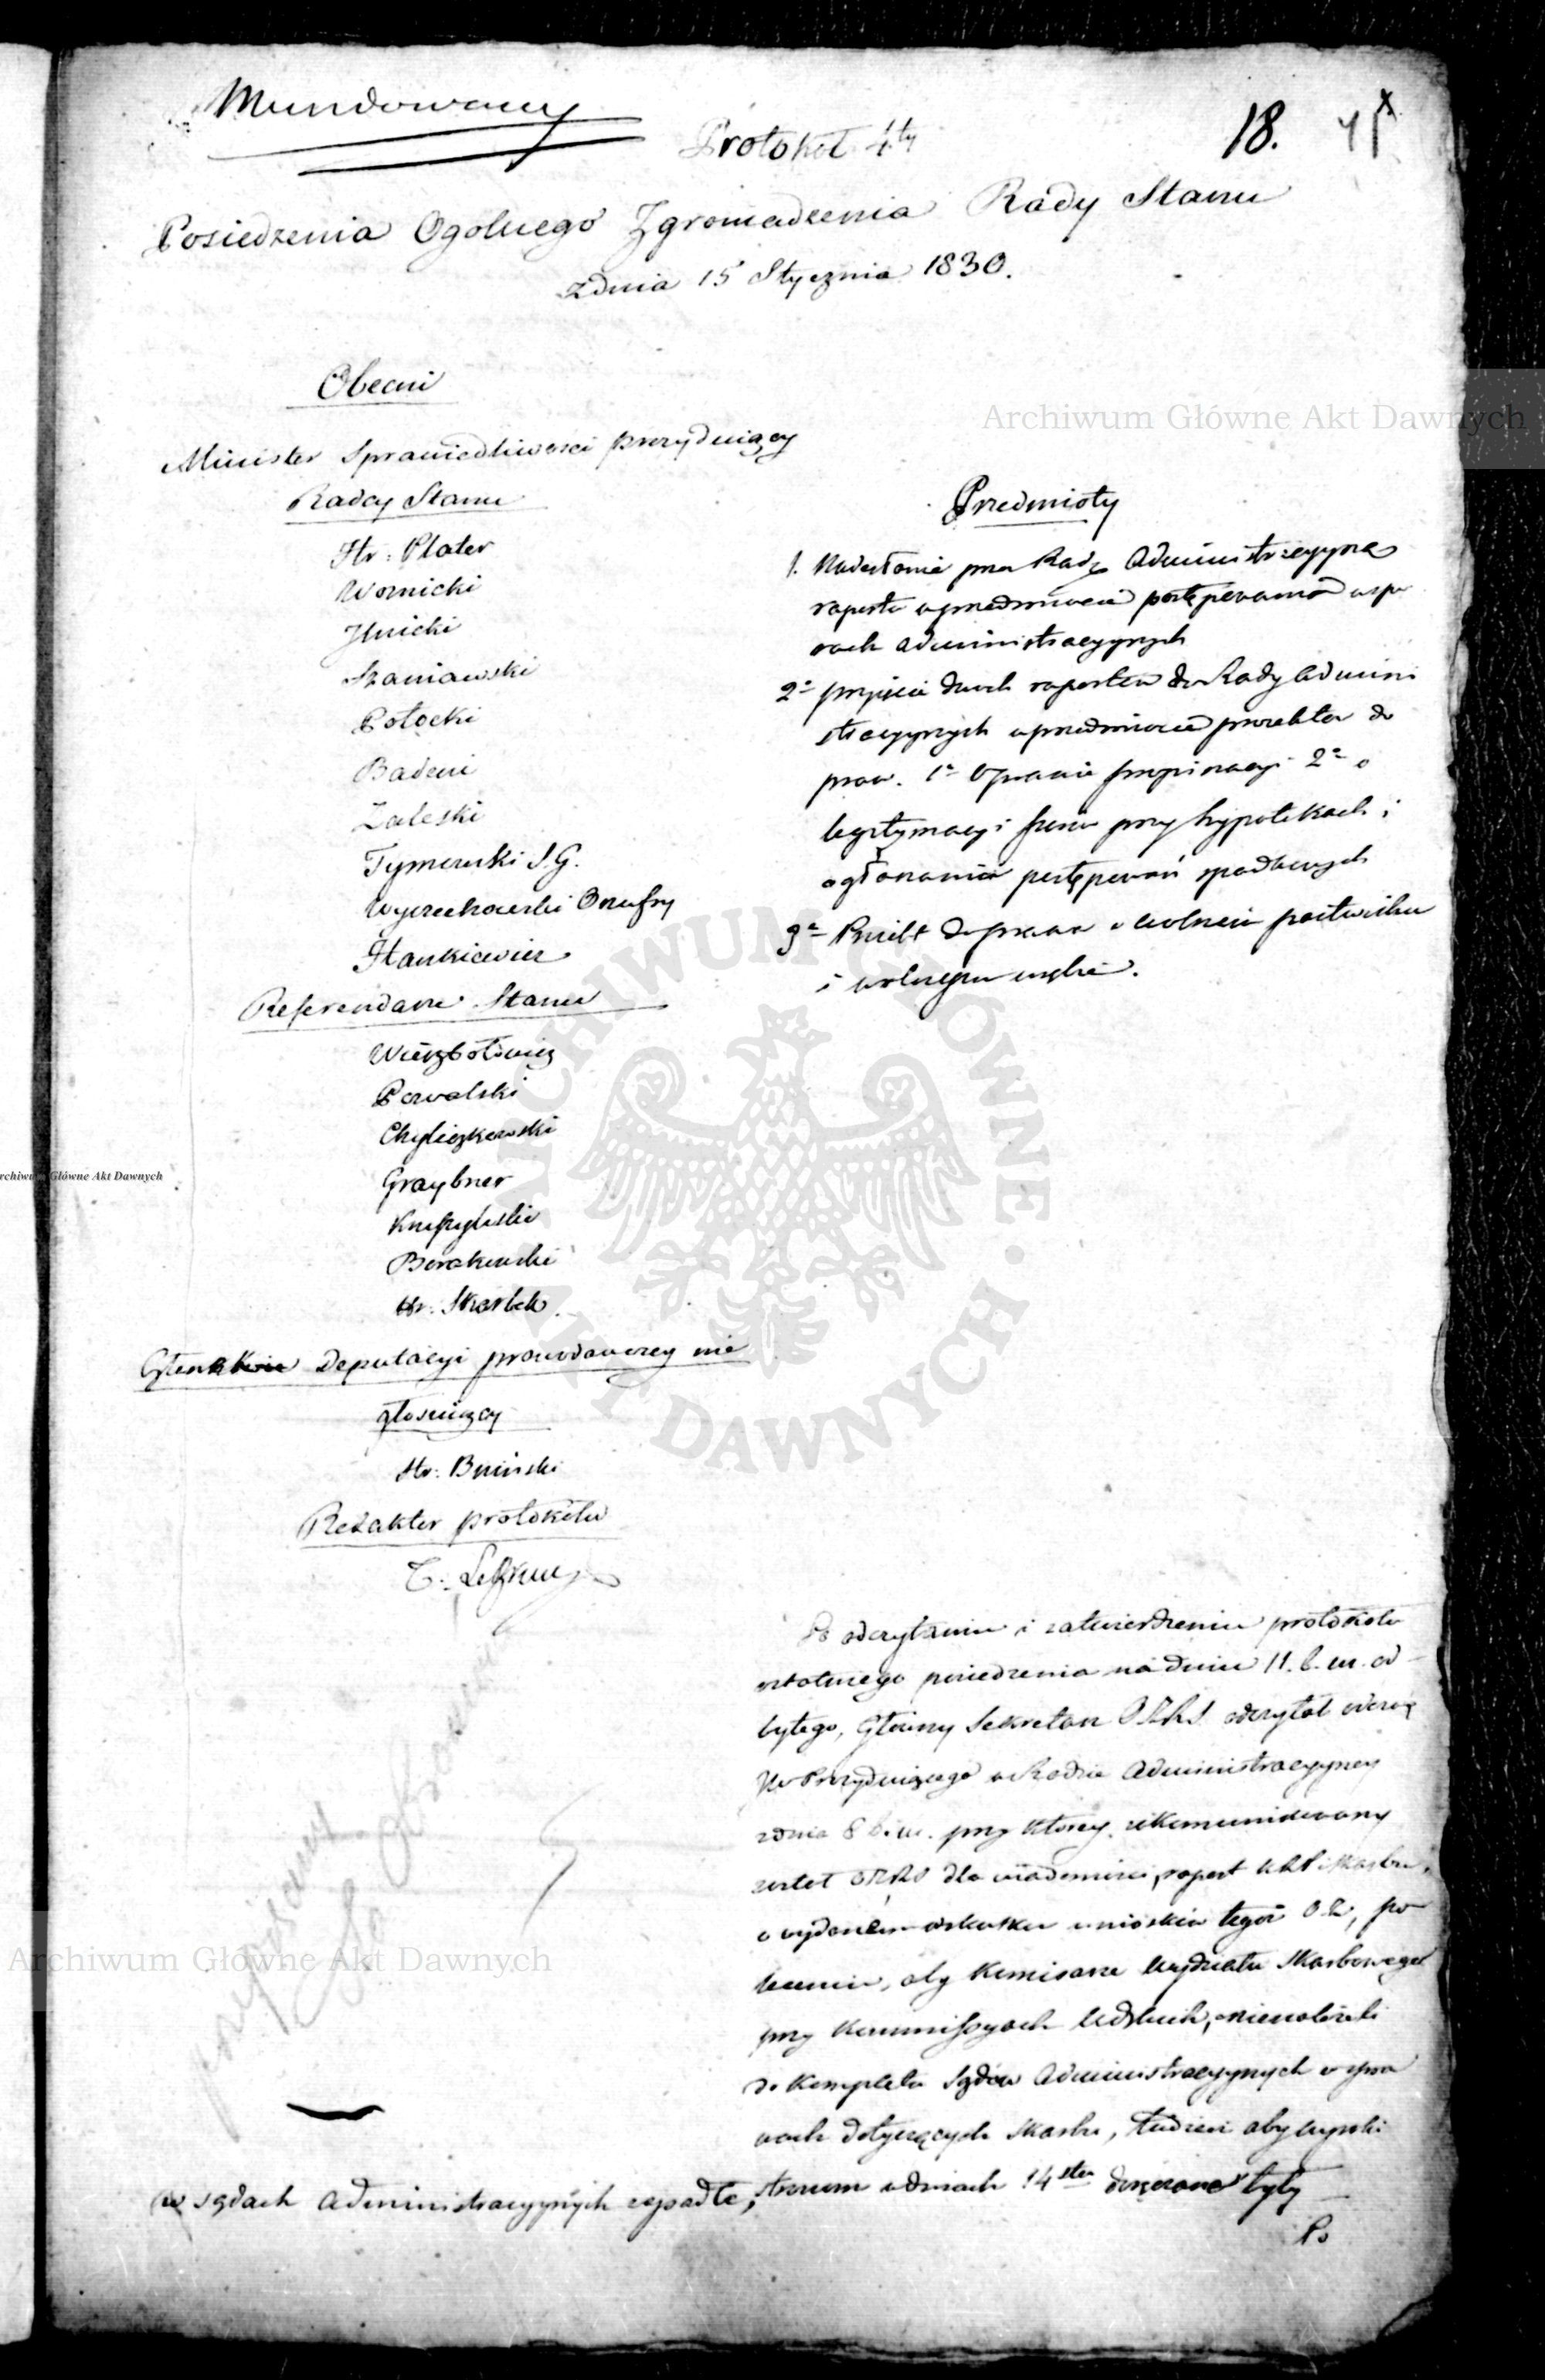 Mundowany
18.
Protokół 4.ty
Posiedzenia Ogolnego Zgromadzenia Rady Stanu
z dnia 15 Stycznia 1830.
Obecni
Minister Sprawiedliwosci prezyduiący
Radcy Stanu
Hr: Plater
Woznicki
Szaniawski
Potocki
Badeni
Zaleski
Tymowski J.G.
Wyczechowski Onufry
Hankiewicz
Referendarze Stanu
Wierzbołowicz
Chyliczkowski
Graybner
Knypiński
Borakowski
Hr. Skarbek
Członkowie Deputacyi prawodawczey nie
głosuiący
Hr: Bniński
Redaktor protokółu
Przedmioty
1. Nadesłanie przez Radę Administracyyną
raportu w przedmiocie postępowania w spo
rach administracyynych
2° przyięcie dwóch raportów do Rady Admini
stracyynych w przedmiocie proiektów do
praw. 1° Wzgl propinacyi 2° o
legitymacyi praw przy hypotekach i
ogłaszaniu postępowań spadkowych
3° Proiekt do prawa o wolnem pastwisku
i wolnym wrębie.
Po odczytaniu i zatwierdzeniu protokołu
ostatniego posiedzenia na dniu 11. b. m. od
bytego, Główny Sekretarz O.Z.R.S. odczytał odezwę
JW Prezyduiącego w Radzie Administracyyney
z dnia 8 b. m. przy którey zakommunikowany
został OZRS dla wiadomości, raport KRP i Skarbu,
o wydanem w skutku wniosków tegoż O.Z., po
leceniu, aby Komisarze Wydziału Skarbowego
przy Kommissyach Wdzkich, nienależeli
do kompletu Sądów Administracyynych w spra
wach dotyczących Skarbu, tudzież aby wyroki
w sądach administracyynych zapadłe, stronom w dniach 14stu doręczane były
Po
Archiwum Główne Akt Dawnych
Archiwum Główne Akt Dawnych
rchiwum Główne Akt Dawnych
ARCHIWUM GŁÓWNE AKT DAWNYCH